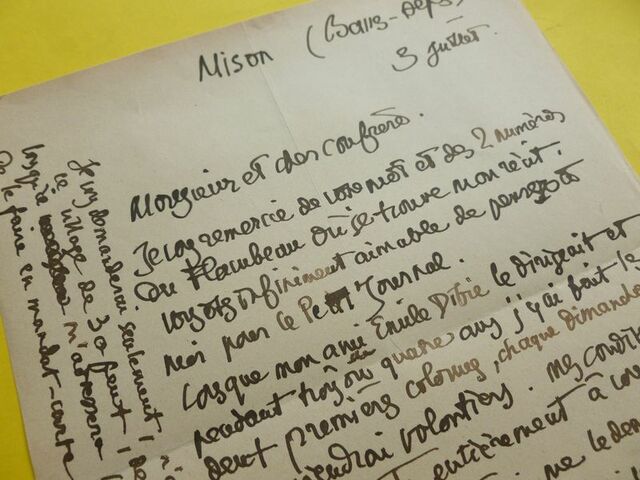 Mison (Basses-Alpes)
3 Juillet.
Monsieur et cher confrère.
Je vous remercie de votre mot et des 2 numéros
du Flambeau où se trouve mon récit.
Vous êtes infiniment aimable de penser à
moi pour le Petit Journal.
Lorsque mon ami Emile le dirigeait et
pendant trois ou quatre ans j'y ai fait les
deux premières colonnes, chaque dimanche
volontiers. Mes condit
entièrement à
me le
Je vous demanderai seulement,
ce village de 30 feux, de
n'adresser
le faire en mandat-carte